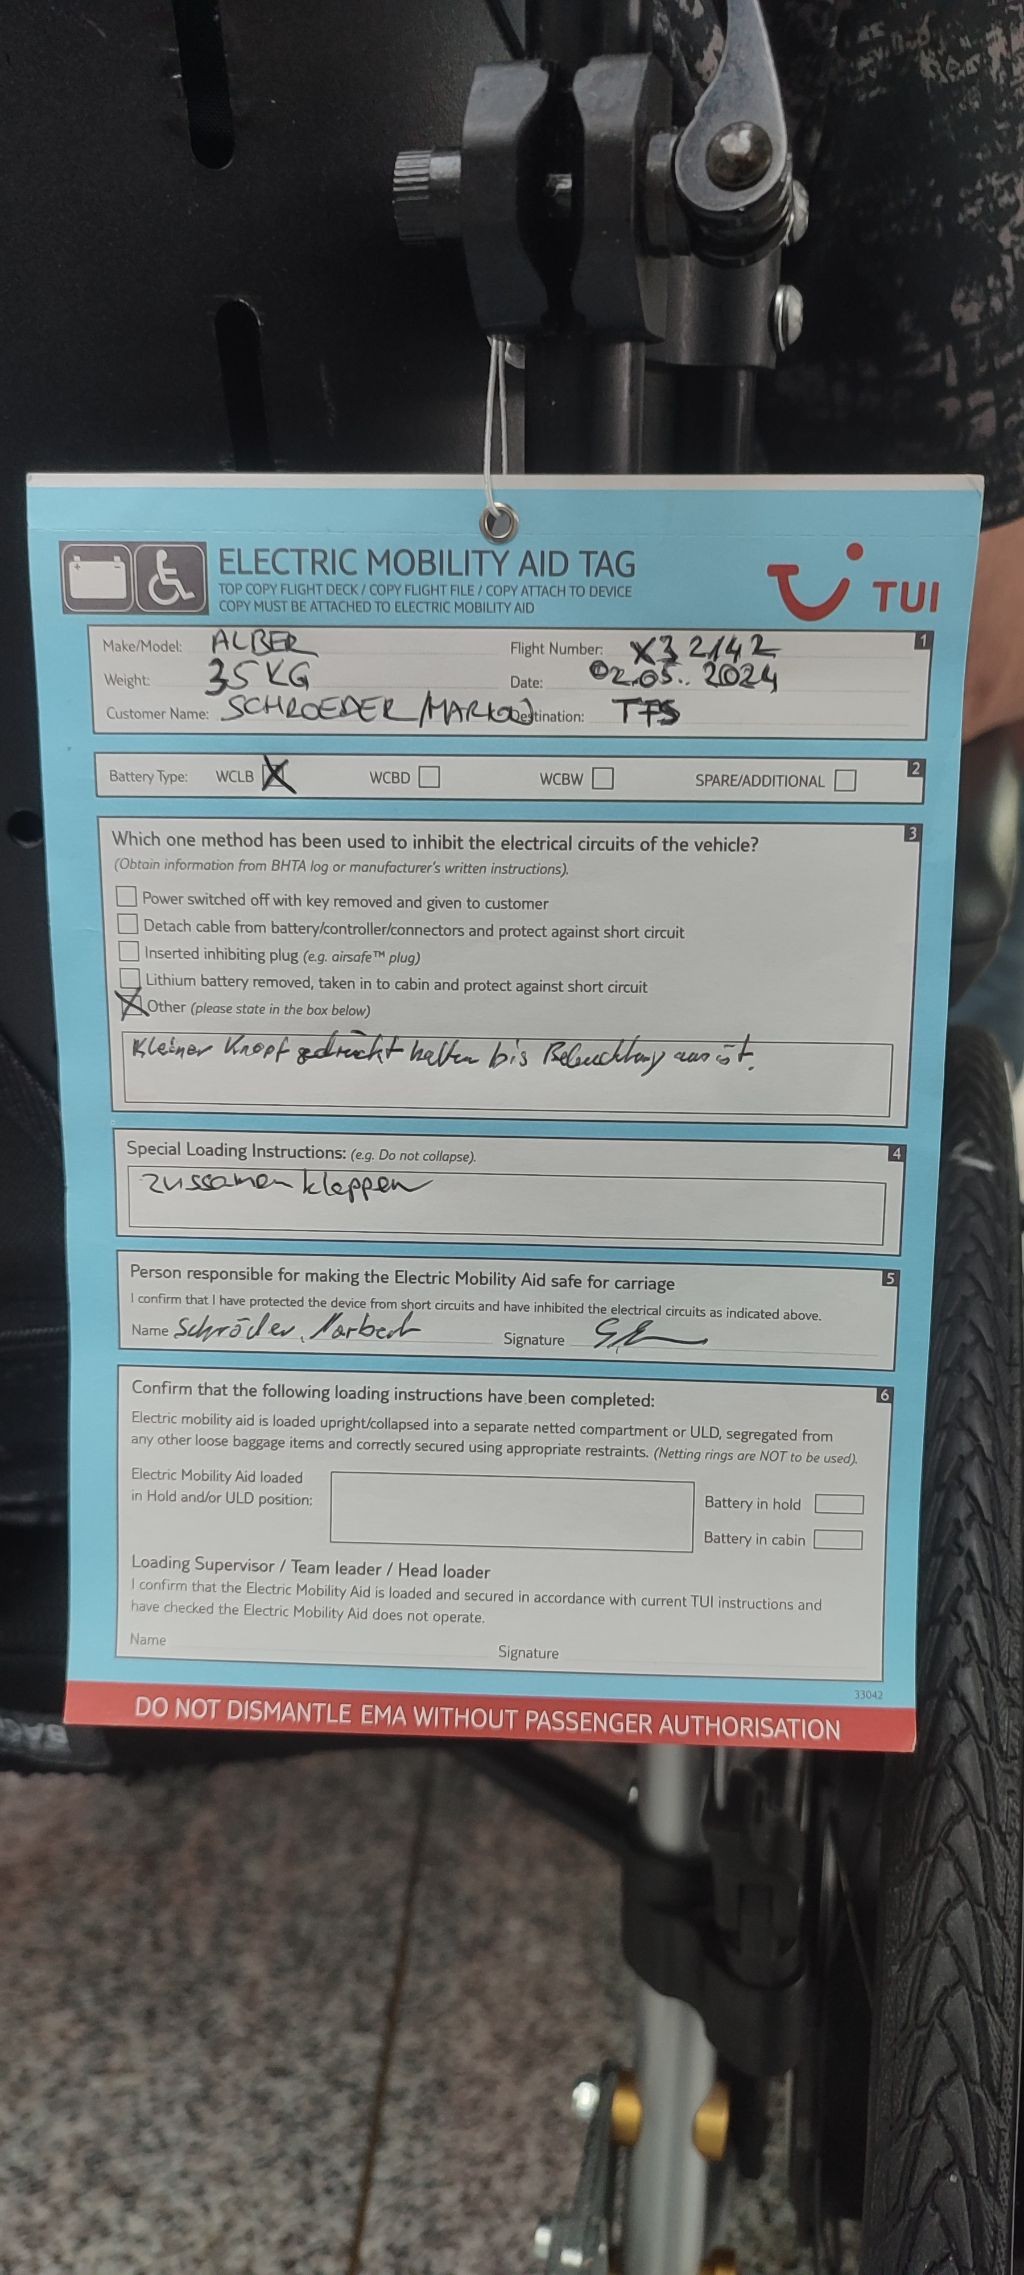 ELECTRIC MOBILITY AID TAG
TOP COPY FLIGHT DECK / COPY FLIGHT FILE / COPY ATTACH TO DEVICE
COPY MUST BE ATTACHED TO ELECTRIC MOBILITY AID
TUI
1
Make/Model: ALBER Flight Number: X3 2142
Weight: 35 KG Date: 02.05.. 2024
Customer Name: SCHROEDER/ Destination: TFS
2
Battery Type: WCLB X WCBD WCBW SPARE/ADDITIONAL
3
Which one method has been used to inhibit the electrical circuits of the vehicle?
(Obtain information from BHTA log or manufacturer's written instructions).
Power switched off with key removed and given to customer
Detach cable from battery/controller/connectors and protect against short circuit
Inserted inhibiting plug (e.g. airsafe™ plug)
Lithium battery removed, taken in to cabin and protect against short circuit
X Other (please state in the box below)
Kleiner Knopf gedrückt halten bis Beleuchtung aus ist.
4
Special Loading Instructions: (e.g. Do not collapse).
zussamen klappen
5
Person responsible for making the Electric Mobility Aid safe for carriage
I confirm that I have protected the device from short circuits and have inhibited the electrical circuits as indicated above.
Name Schröder, Signature
6
Confirm that the following loading instructions have been completed:
Electric mobility aid is loaded upright/collapsed into a separate netted compartment or ULD, segregated from
any other loose baggage items and correctly secured using appropriate restraints. (Netting rings are NOT to be used).
Electric Mobility Aid loaded
in Hold and/or ULD position:
Battery in hold
Battery in cabin
Loading Supervisor / Team leader / Head loader
I confirm that the Electric Mobility Aid is loaded and secured in accordance with current TUI instructions and
have checked the Electric Mobility Aid does not operate.
Name Signature
33042
DO NOT DISMANTLE EMA WITHOUT PASSENGER AUTHORISATION